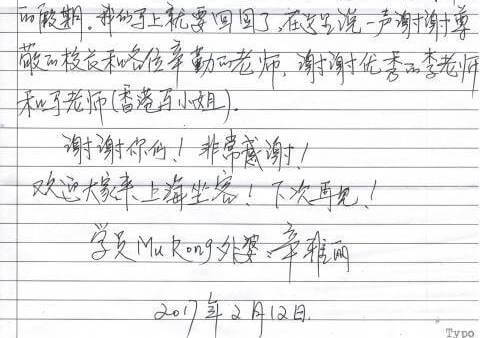 的假期。我们马上就要回国了,在这里说一声谢谢尊
敬的校长和各位辛勤的老师,谢谢优秀的李老师
和马老师(香港马小姐)。
谢谢你们!非常感谢!
欢迎大家来上海坐客!下次再见!
学员MuRong外婆:辛雅丽
2017年2月12日.
Typo